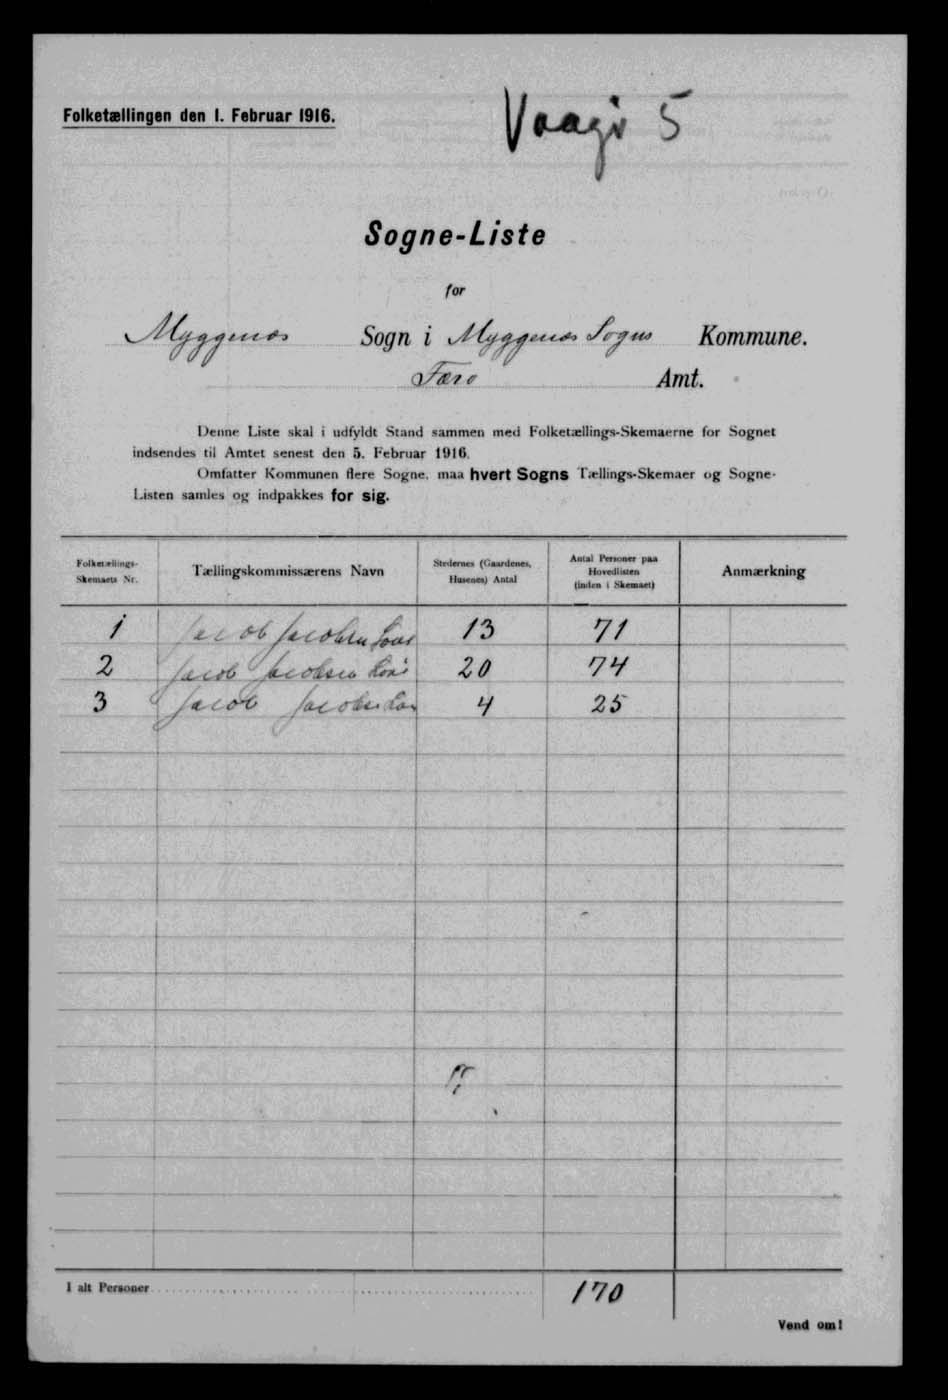 Folketællingen den 1. Februar 1916.
Vaagø 5
Sogne-Liste
for
Myggenæs Sogn i Myggenæs Sogns Kommune.
Færø Amt.
Denne Liste skal i udfyldt Stand sammen med Folketællings-Skemaerne for Sognet
indsendes til Amtet senest den 5. Februar 1916.
Omfatter Kommunen flere Sogne, maa hvert Sogns Tællings-Skemaer og Sogne-
Listen samles og indpakkes for sig.
Folketællings-
Skemaets Nr.
Tællingskommissærens Navn
Stedernes (Gaardenes,
Husenes) Antal
Antal Personer paa
Hovedlisten
(inden i Skemaet)
Anmærkning
1 Jacob Jacobsen 13 71
2 Jacob Jacobsen 20 74
3 Jacob Jacobsen 4 25
I alt Personer 170
Vend om!